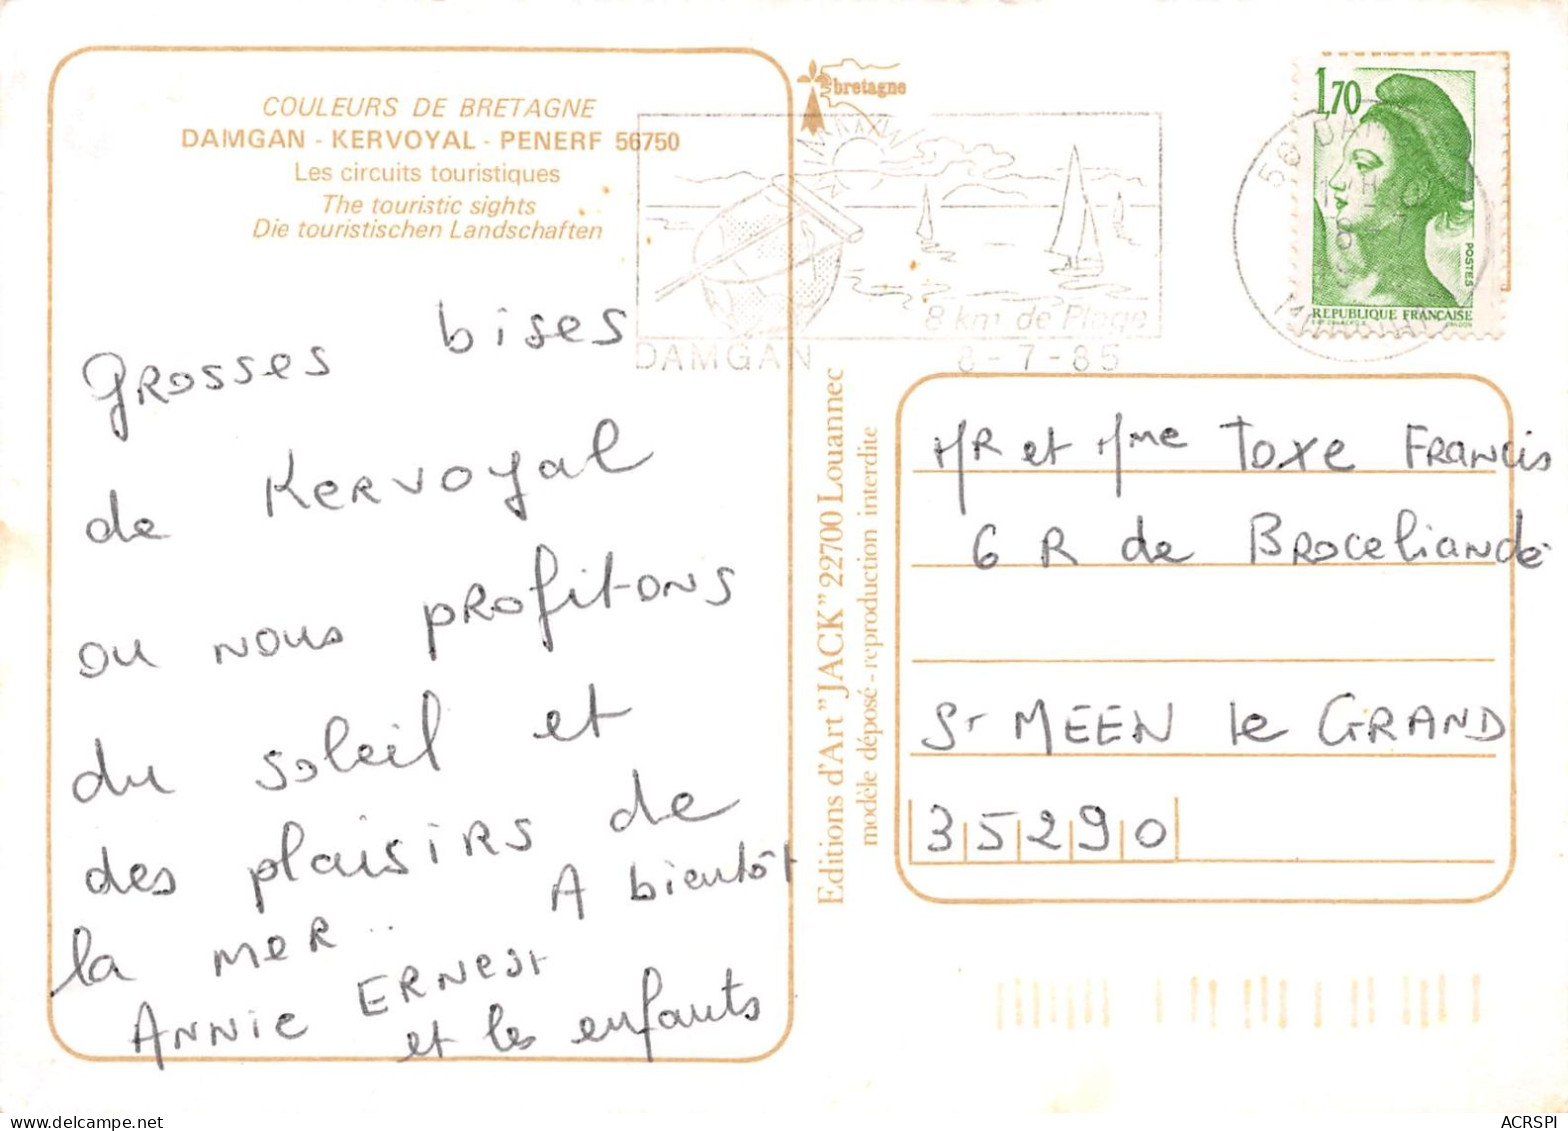 COULEURS DE BRETAGNE
DAMGAN - KERVOYAL - PENERF 56750
Les circuits touristiques
The touristic sights
Die touristischen Landschaften
Grosses bises
de Kervoyal
ou nous profitons
du soleil et
des plaisirs de
la mer..
A bientôt
Annie Ernest
et les enfants
bretagne
8 km de Plage
DAMGAN 8-7-85
1,70
POSTES
REPUBLIQUE FRANÇAISE
Editions d'Art "JACK" 22700 Louannec
modèle déposé - reproduction interdite
Mr et Mme Toxe Francis
6 R de Broceliande
St MEEN le GRAND
35290
ACRSPI